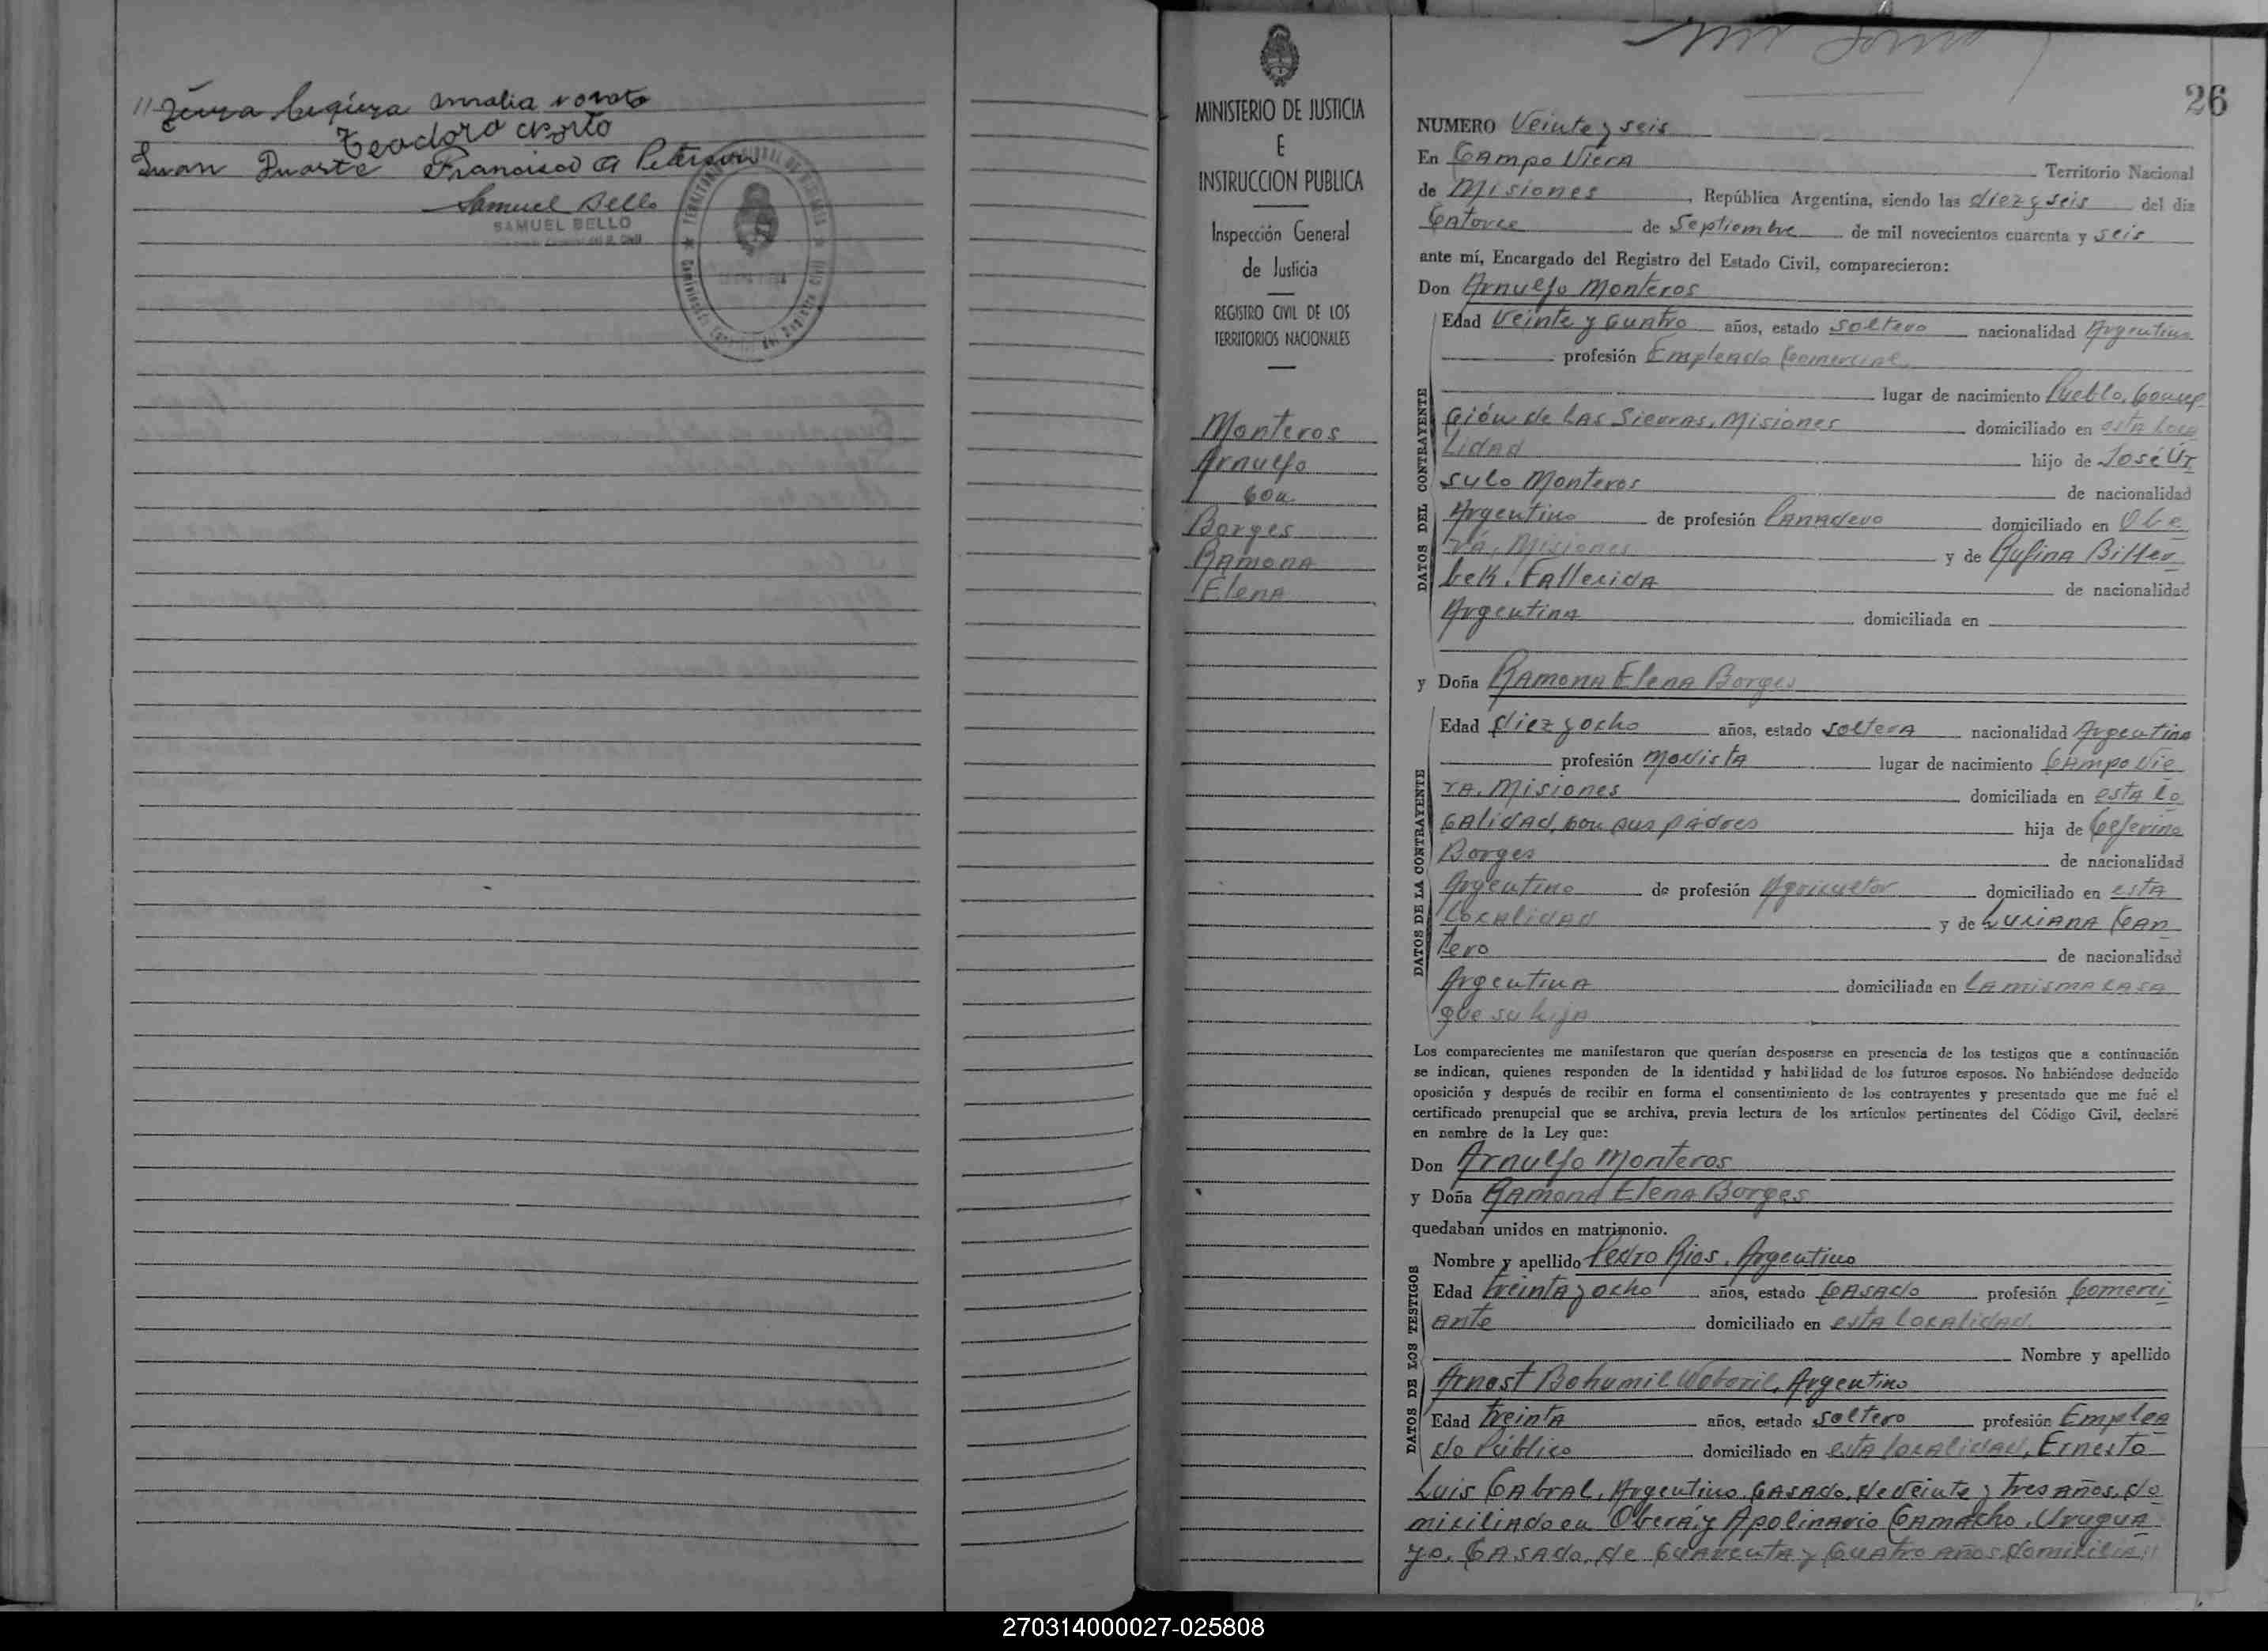 Amalia
Teodoro
Juan Duarte Francisco A Peterson
Samuel Bello
SAMUEL BELLO
26
MINISTERIO DE JUSTICIA
E
INSTRUCCION PUBLICA
Inspección General
de Justicia
REGISTRO CIVIL DE LOS
TERRITORIOS NACIONALES
Monteros
Arnulfo
con
Borges
Ramona
Elena
NUMERO Veinte y seis
En Campo Viera Territorio Nacional
de Misiones, República Argentina, siendo las diez y seis del día
Catorce de Septiembre de mil novecientos cuarenta y seis
ante mí, Encargado del Registro del Estado Civil, comparecieron:
Don Arnulfo Monteros
DATOS DEL CONTRAYENTE
Edad Veinte y Cuatro años, estado soltero nacionalidad Argentino
profesión Empleado Comercial
lugar de nacimiento Pueblo, Concep
ción de Las Sierras, Misiones domiciliado en esta loca
lidad hijo de José Ur
sulo Monteros de nacionalidad
Argentino de profesión Panadero domiciliado en Obe
rá, Misiones y de Rufina Bitten
bek, Fallecida de nacionalidad
Argentina domiciliada en
y Doña Ramona Elena Borges
DATOS DE LA CONTRAYENTE
Edad diez y ocho años, estado soltera nacionalidad Argentina
profesión Modista lugar de nacimiento Campo Vie
ra, Misiones domiciliada en esta lo
calidad, con sus padres hija de Ceferino
Borges de nacionalidad
Argentino de profesión Agricultor domiciliado en esta
localidad y de Luciana Can
tero de nacionalidad
Argentina domiciliada en la misma casa
que su hija
Los comparecientes me manifestaron que querían desposarse en presencia de los testigos que a continuación
se indican, quienes responden de la identidad y habilidad de los futuros esposos. No habiéndose deducido
oposición y después de recibir en forma el consentimiento de los contrayentes y presentado que me fué el
certificado prenupcial que se archiva, previa lectura de los artículos pertinentes del Código Civil, declaré
en nombre de la Ley que:
Don Arnulfo Monteros
y Doña Ramona Elena Borges
quedaban unidos en matrimonio.
DATOS DE LOS TESTIGOS
Nombre y apellido Pedro Rios, Argentino
Edad treinta y ocho años, estado Casado profesión Comerci
ante domiciliado en esta localidad
Nombre y apellido
Arnost Bohumil, Argentino
Edad treinta años, estado soltero profesión Emplea
do Público domiciliado en esta localidad, Ernesto
Luis Cabral, Argentino, Casado, de Veinte y tres años, do
miciliado en Oberá, y Apolinario Camacho, Urugua
yo, Casado, de Cuarenta y Cuatro años domicilia//
270314000027-025808